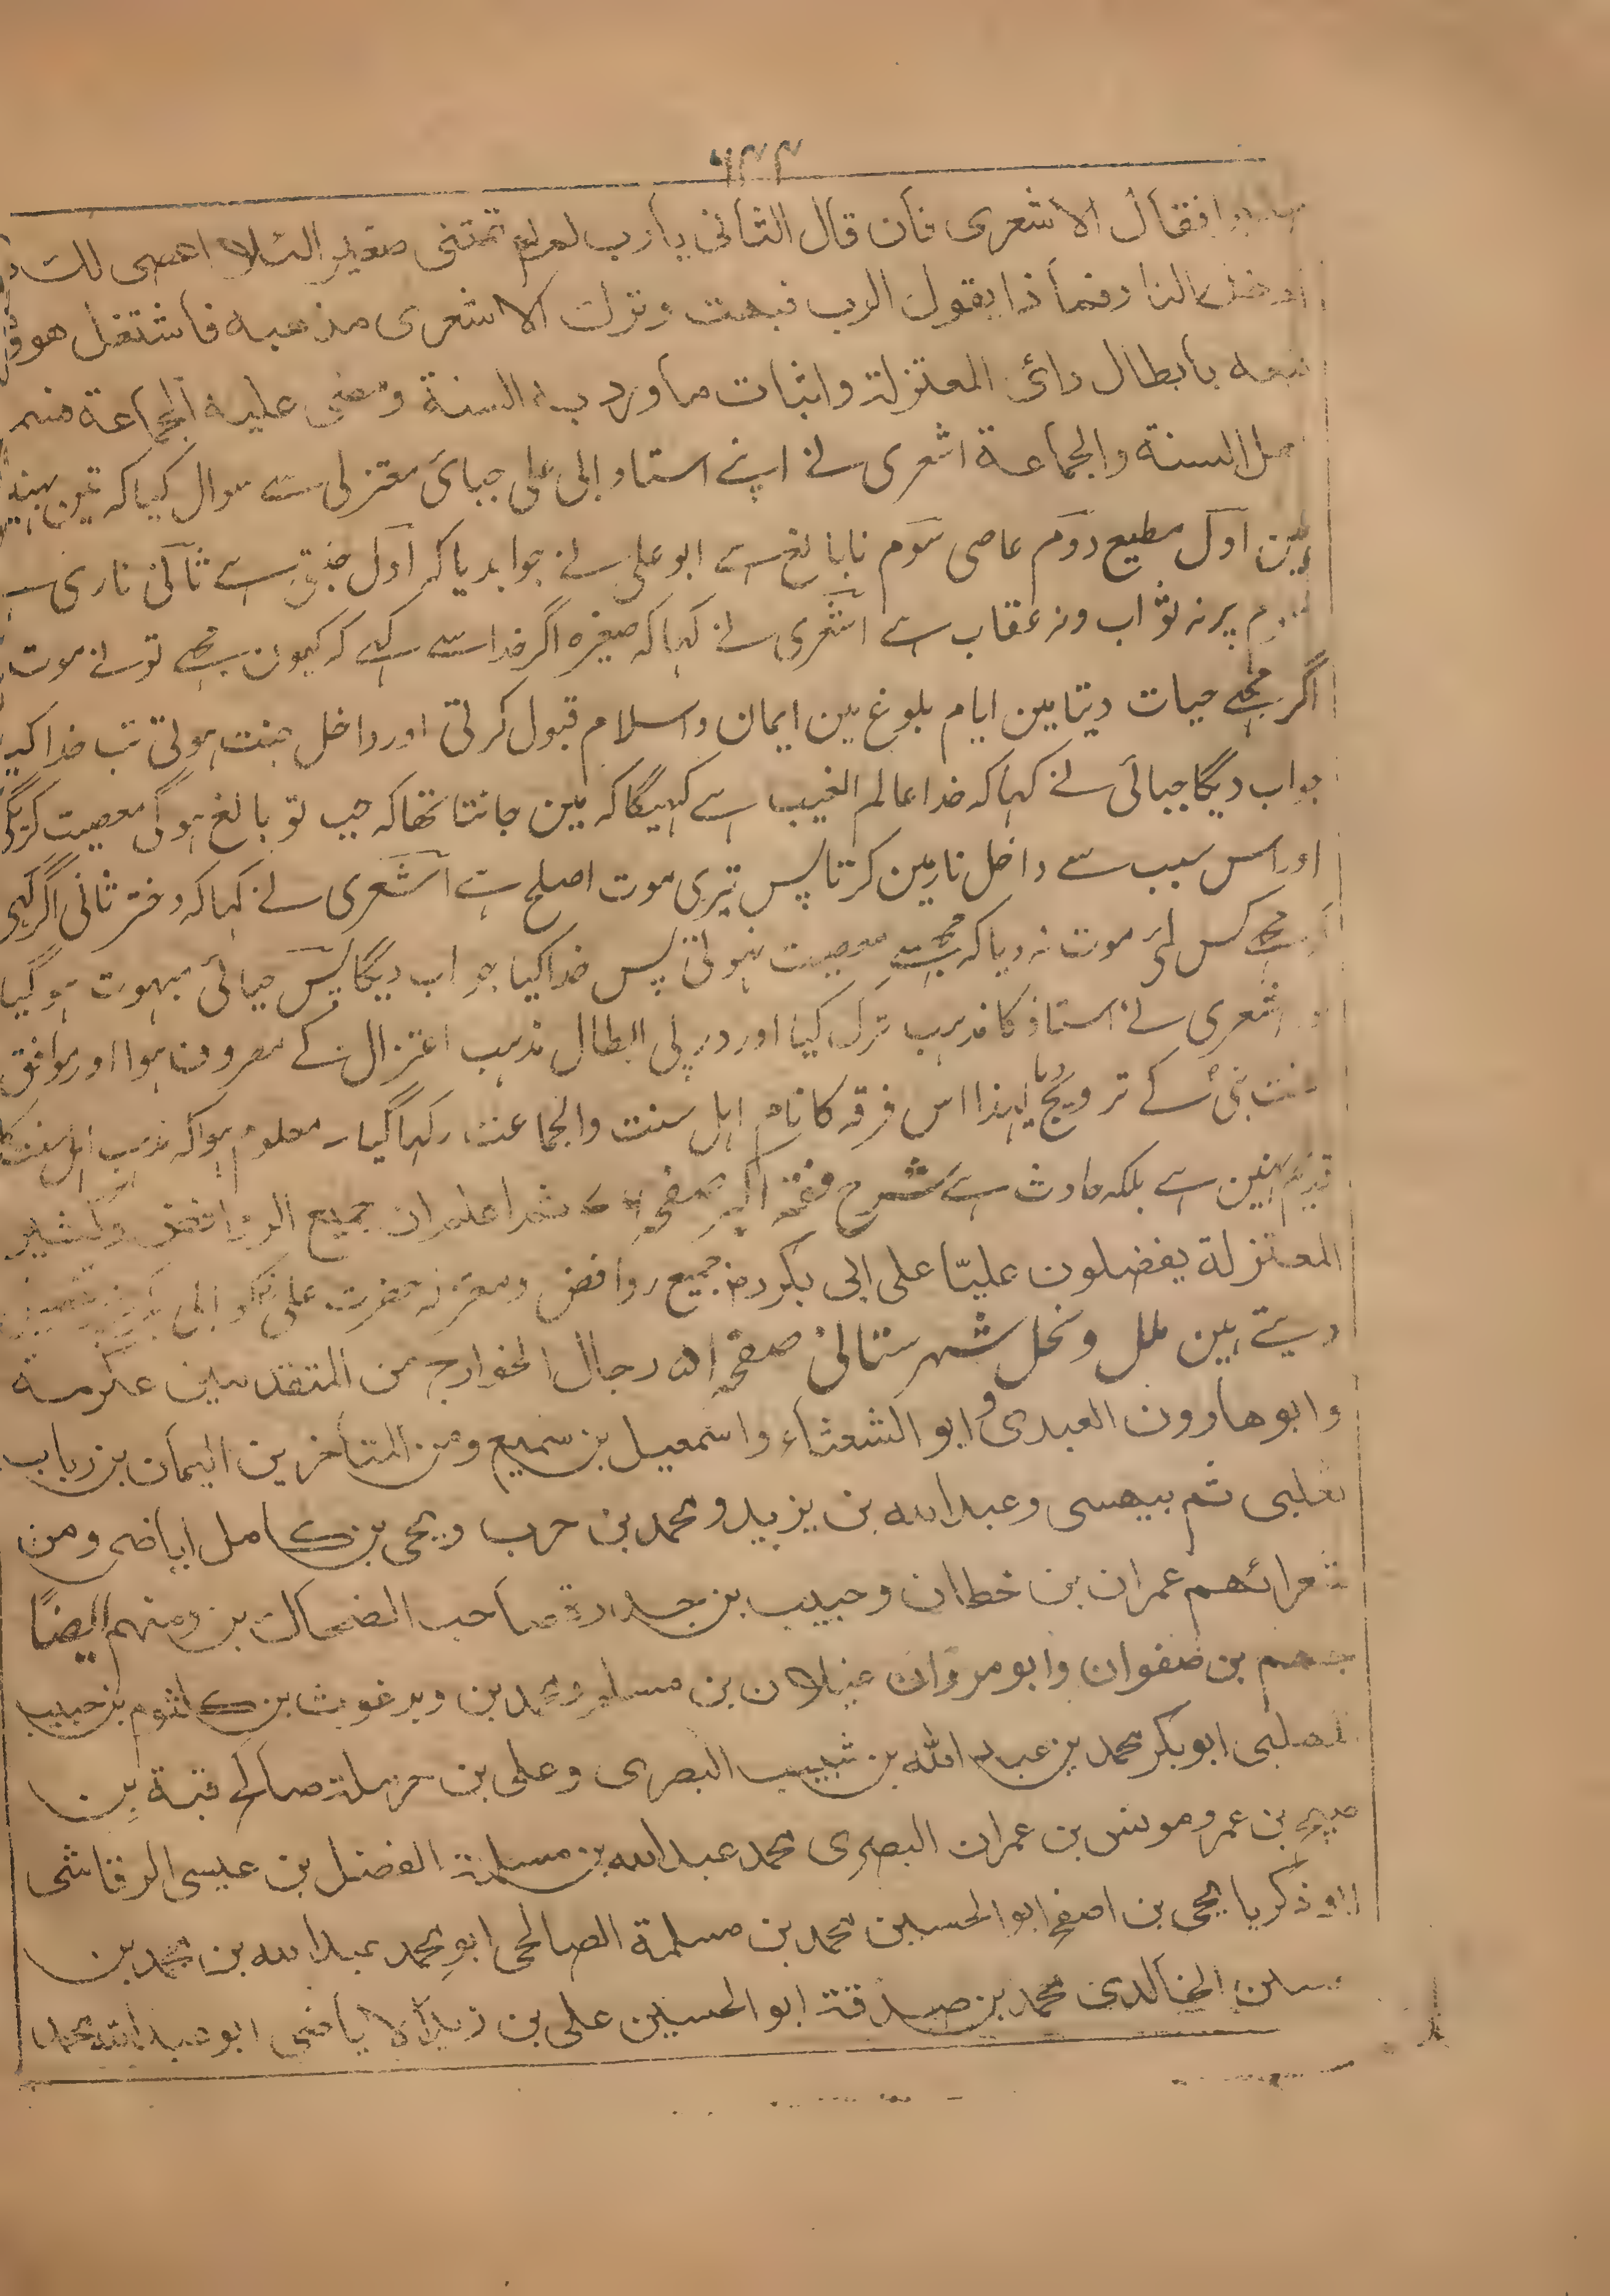 ۶۴۴
فقال الاشعری فان قال الثانی یارب لم لم تمتنی صغیرا لئلا اعصی لک
ادخل النار فماذا یقول الرب فبهت وترک الاشعری مذهبه فاشتغل هو و
تبعه بابطال رائ المعتزلة واثبات ماورد به السنة ومضی علیه الجماعة منهم
اهل السنة والجماعة اشعری نے اپنے استاد ابی علی جبائ معتزلی سے سوال کیا کہ تین
ہین اول مطیع دوم عاصی سوم نابالغ ہے ابو علی نے جواب دیا کہ اول جنتی ہے ثانی ناری ہے
سوم پر نہ ثواب ونہ عقاب ہے اشعری نے کہا کہ صغیرہ اگر خدا سے کہے کہ کیون مجھے تو نے موت
اگر مجھے حیات دیتا مین ایام بلوغ مین ایمان واسلام قبول کرتی اور داخل جنت ہوتی تب خدا کیا
جواب دیگا جبائی نے کہا کہ خدا عالم الغیب ہے کہیگا کہ مین جانتا تھا کہ جب تو بالغ ہوگی معصیت کریگی
اور اس سبب سے داخل نار مین کرتا پس تیری موت اصلح ہے اشعری نے کہا کہ دختر ثانی اگر کہی
مجھے کس لئے موت نہ دیا کہ مجھسے معصیت نہوتی پس خدا کیا جواب دیگا پس جبائی مبہوت ہو گیا
اشعری نے استاذ کا مذہب ترک کیا اور در پی ابطال مذہب اعتزال کے مصروف ہوا اور موافق
سنت نبی کے ترویج دیا لہذا اس فرقہ کا نام اہل سنت والجماعت رکہا گیا ۔ معلوم ہوا کہ مذہب اہل سنت کا
قدیم نہین ہے بلکہ حادث ہے شرح فقہ اکبر صفحہ ثم اعلم ان جمیع الروافض وکثیر
المعتزلة یفضلون علیّا علی ابی بکر رض جمیع روافض و معتزلہ حضرت علی کو ابی بکر پر
دیتے ہین ملل و نحل شہرستانی صفحہ ۵۱ رجال الخوارج من المتقدمین عکرمة
وابو هارون العبدی و ابو الشعثاء واسمعیل بن سمیع ومن المتأخرین الیمان بن رباب
ثعلبی ثم بیهسی وعبد الله بن یزید و محمد بن حرب ویحیی بن کامل اباضی ومن
شعرائهم عمران بن خطان وحبیب بن جدرة صاحب الضحاک بن ومنهم ایضًا
جهم بن صفوان وابو مروان غیلان بن مسلم ومحمد بن وبرغوث بن کلثوم بن حبیب
المهلبی ابوبکر محمد بن عبد الله بن شبیب البصری وعلی بن حرملة صالح قبة بن
صبیح بن عمرو مونس بن عمران البصری محمد عبد الله بن مسلمة الفضل بن عیسی الرقاشی
ابو ذکریا یحیی بن اصفح ابو الحسین محمد بن مسلمة الصالحی ابو محمد عبد الله بن محمد بن
الخالدی محمد بن صدقة ابو الحسین علی بن زید الاباضی ابو عبد الله محمد